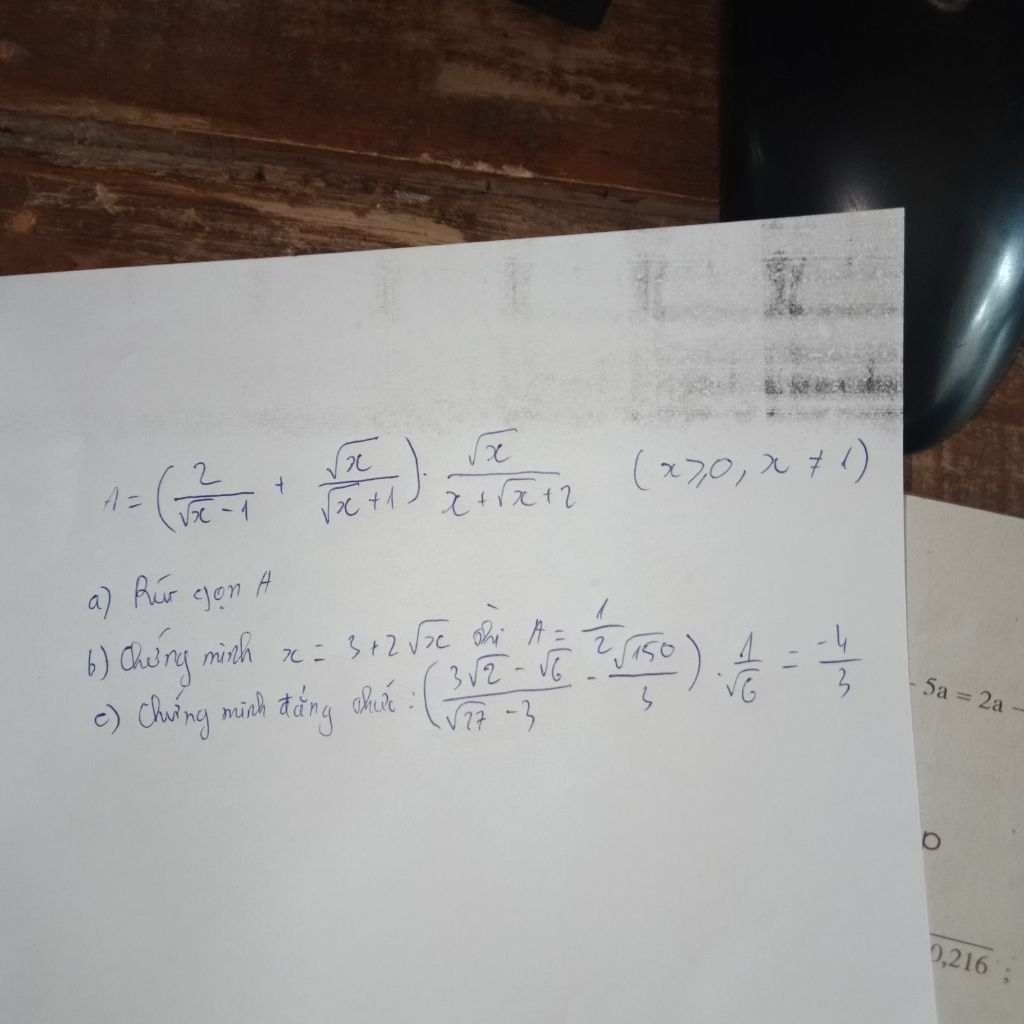 A = (2/(√x - 1) + √x/(√x + 1)) · √x/(x + √x + 2) (x ≥ 0, x ≠ 1)
a) Rút gọn A
b) Chứng minh x = 3 + 2√x thì A = 1/2
c) Chứng minh đẳng thức: ((3√2 - √6)/(√27 - 3) - √150/3) · 1/√6 = -4/3
- 5a = 2a -
0,216 ;